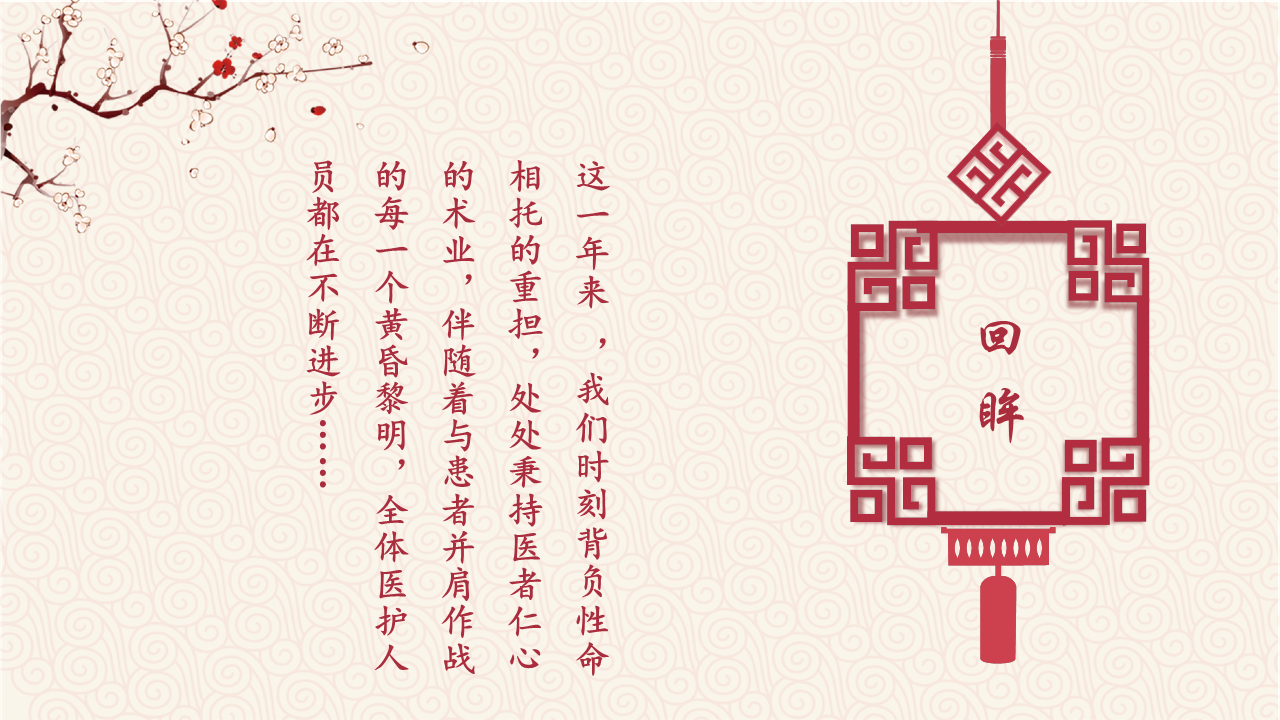 回眸
这一年来，我们时刻背负性命
相托的重担，处处秉持医者仁心
的术业，伴随着与患者并肩作战
的每一个黄昏黎明，全体医护人
员都在不断进步……